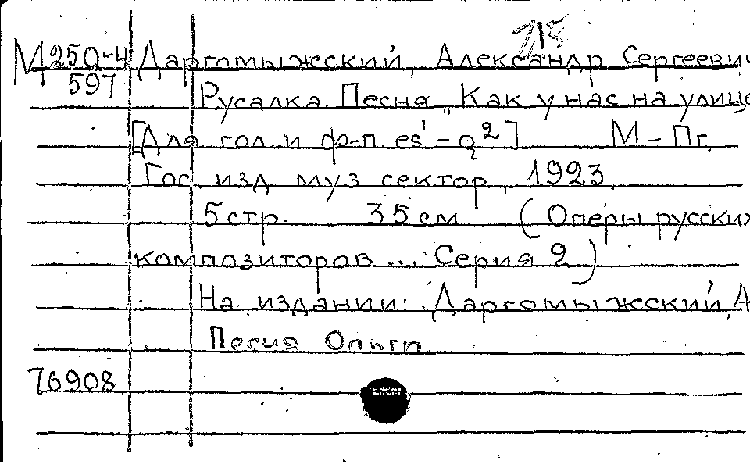 М 250-4 Даргомыжский, Александр Сергеевич
597
Русалка. Песня "Как у нас на улице
[Для гол. и ф-п. es¹-g²] М-Пг,
Гос. изд. муз. сектор, 1923.
5 стр. 35 см (Оперы русских
композиторов ... Серия 2)
На издании: Даргомыжский, А
Песня Ольги
76908